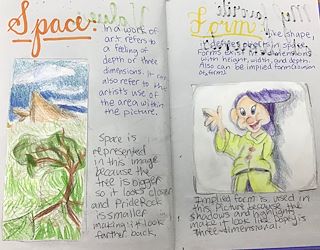 Space:
In a work of
art, refers to
a feeling of
depth or three
dimensions. It can
also refer to the
artist's use
of the area within
the picture.
Space is
represented
in this image
because the
tree is bigger
so it looks closer
and Pride Rock
is smaller
making it look
farther back.
My favorite
Form: like shape,
defines objects in space.
Forms exist in 3 dimensions
with height, width, and depth.
Also can be implied form (illusion
of form).
Implied form is used in
this picture because the
shadows and highlights
make it look like Dopey is
three-dimensional.